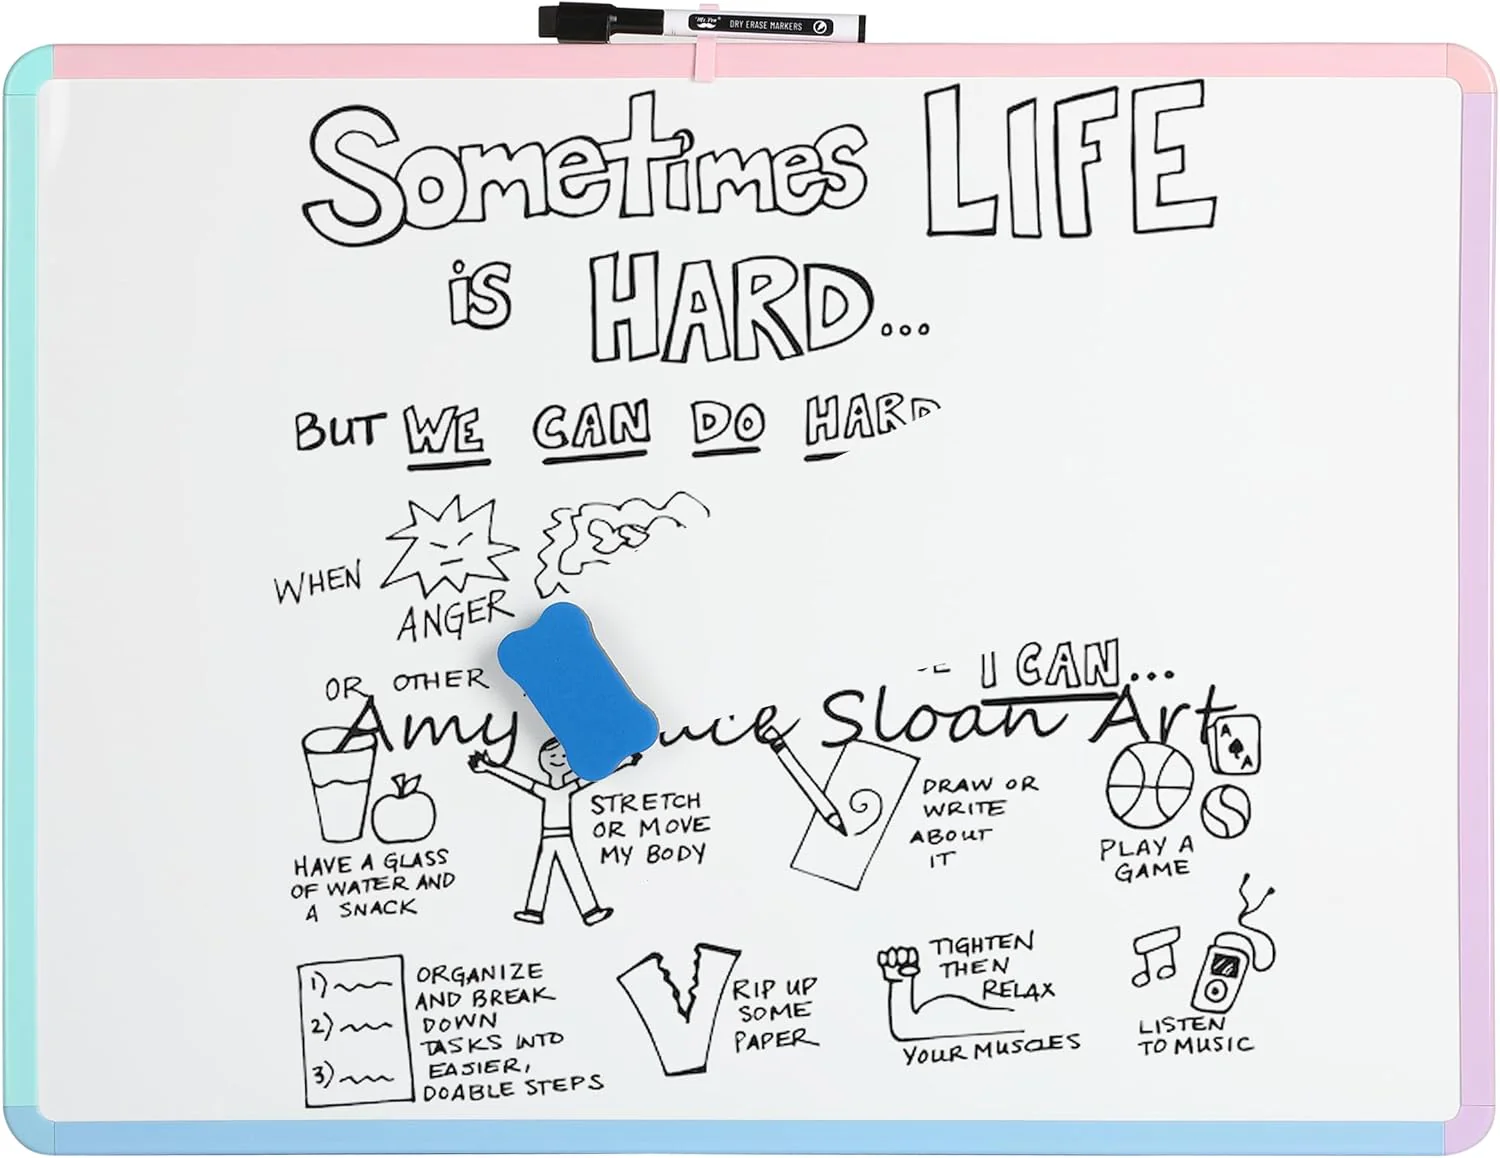 "Mr. Pen" DRY ERASE MARKERS
Sometimes LIFE
is HARD...
BUT WE CAN DO HARD
WHEN
ANGER
OR OTHER
I CAN...
Amy Sloan Art
HAVE A GLASS
OF WATER AND
A SNACK
STRETCH
OR MOVE
MY BODY
DRAW OR
WRITE
ABOUT
IT
PLAY A
GAME
A
A
1)
2)
3)
ORGANIZE
AND BREAK
DOWN
TASKS INTO
EASIER,
DOABLE STEPS
RIP UP
SOME
PAPER
TIGHTEN
THEN
RELAX
YOUR MUSCLES
LISTEN
TO MUSIC